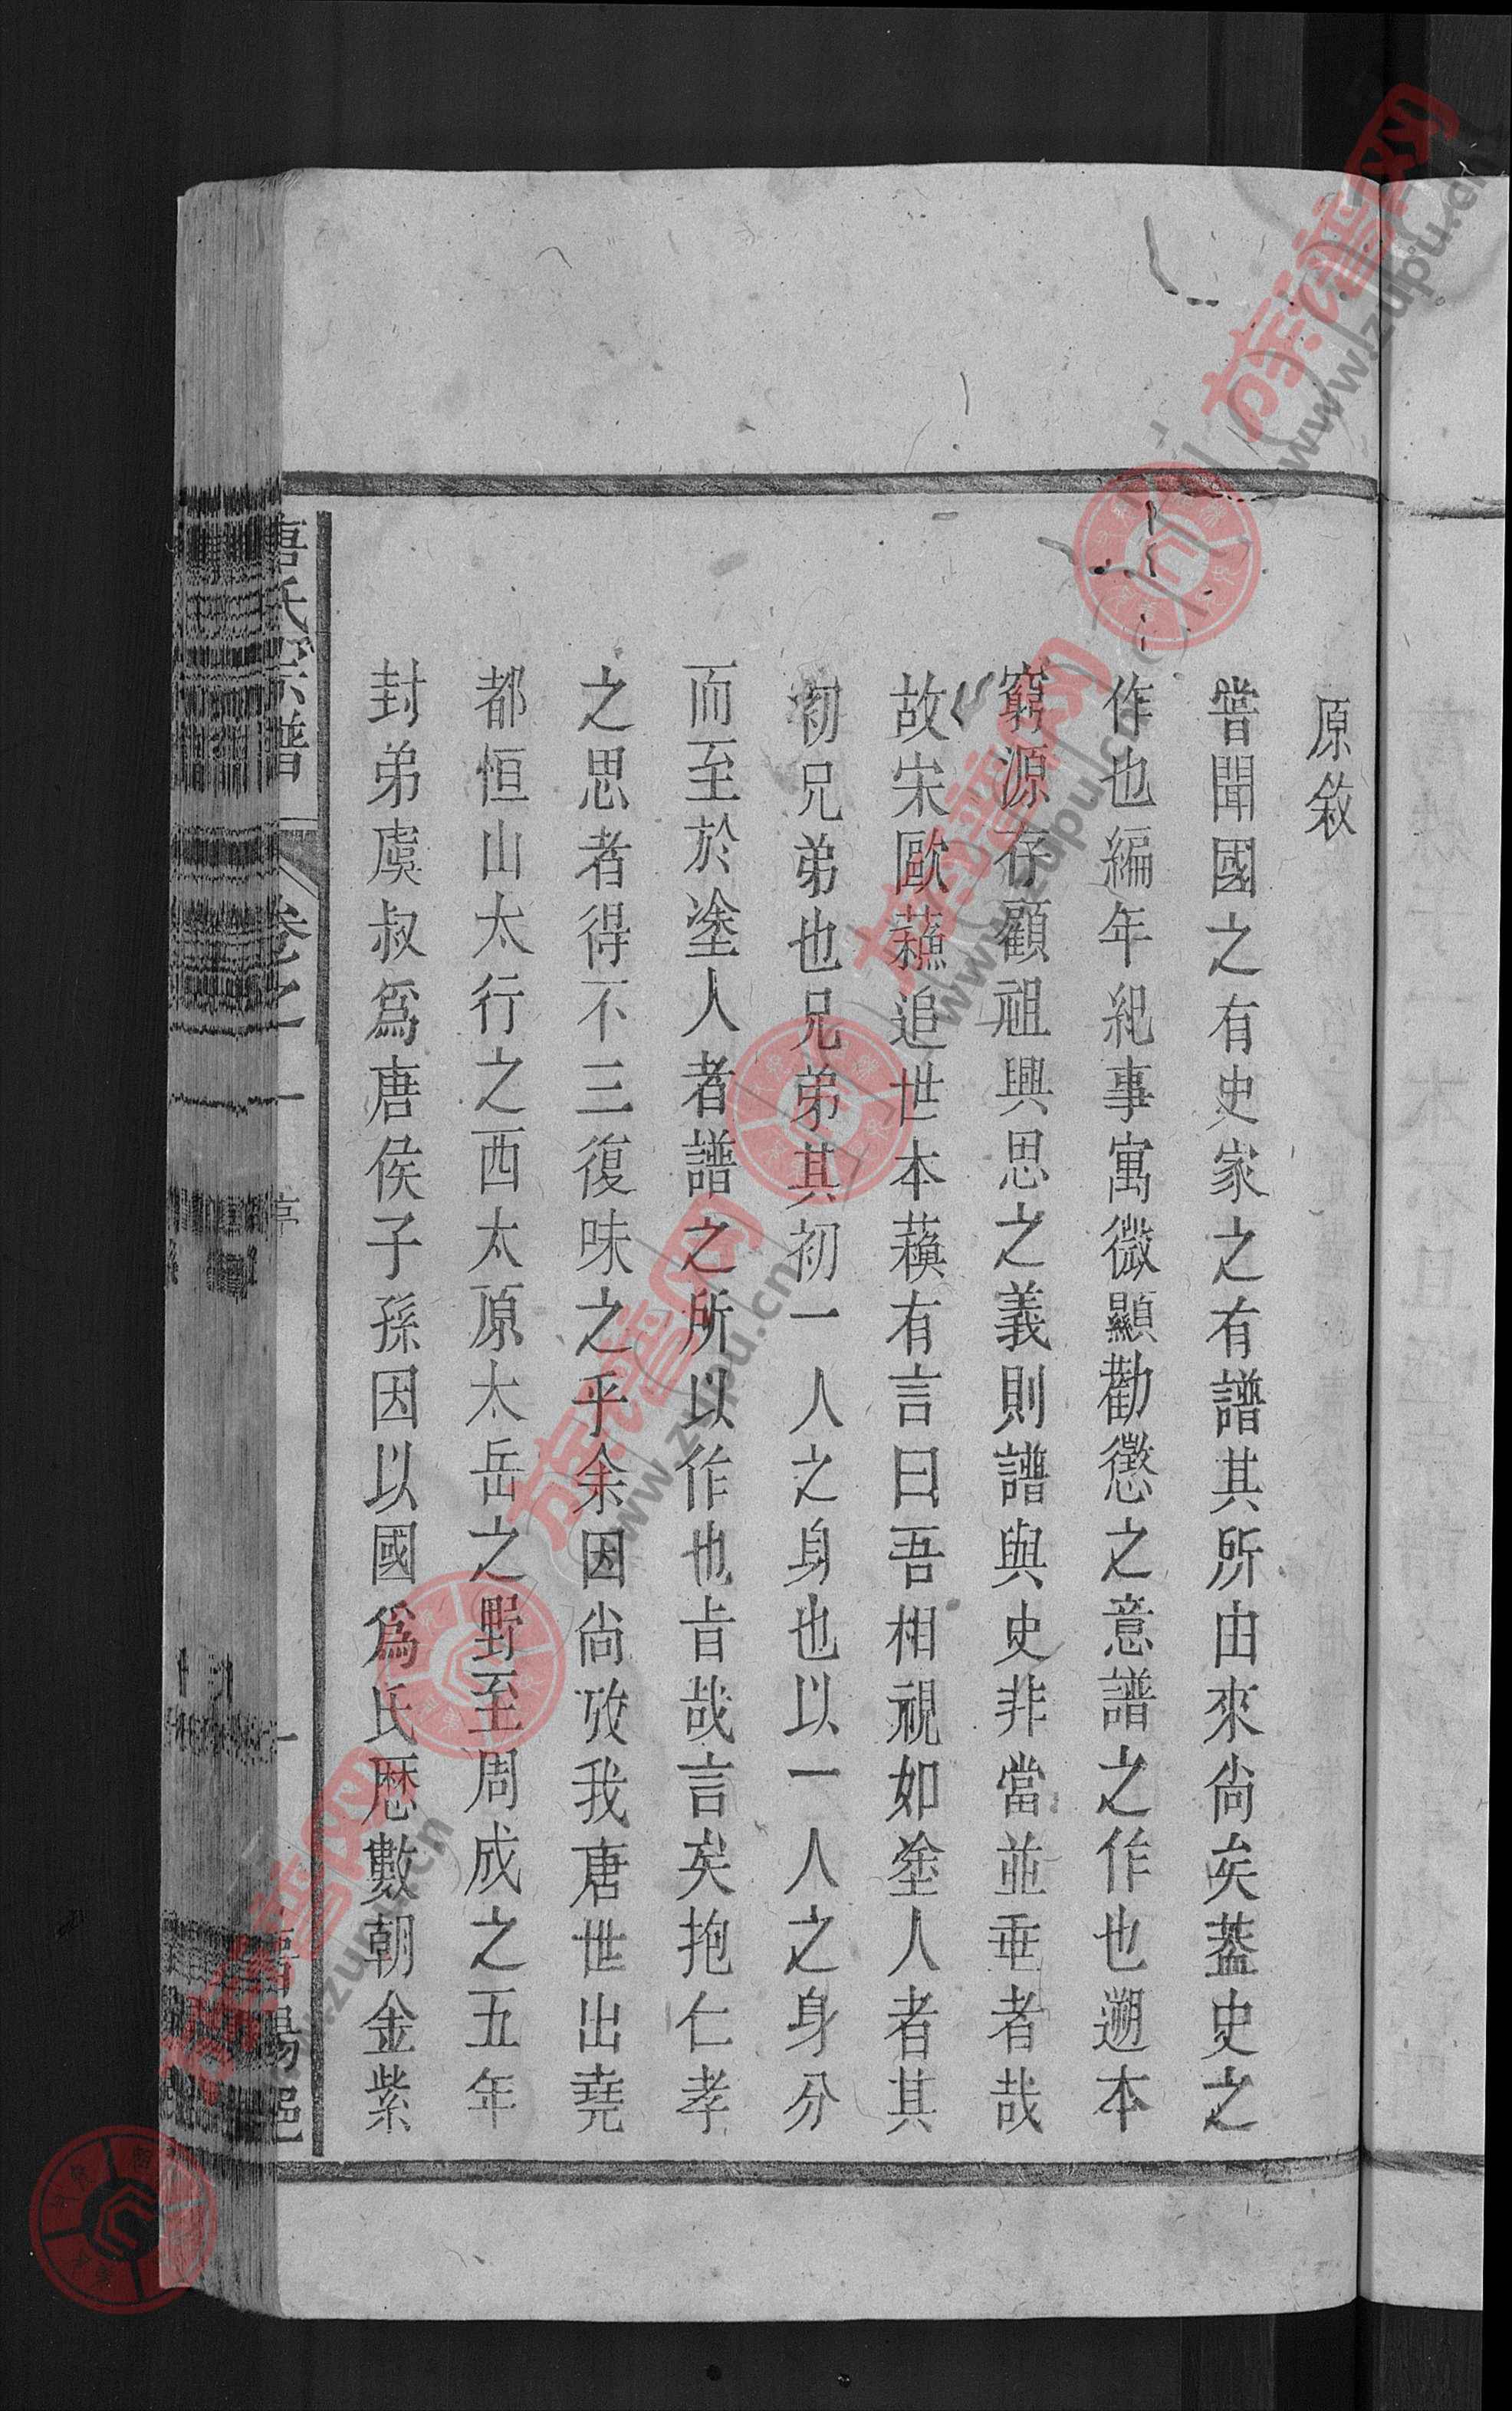 原敘
嘗聞國之有史家之有譜其所由來尚矣蓋史之
作也編年紀事寓微顯勸懲之意譜之作也遡本
窮源存顧祖興思之義則譜與史非當並垂者哉
故宋歐蘓追世本蘓有言曰吾相視如塗人者其
初兄弟也兄弟其初一人之身也以一人之身分
而至於塗人者譜之所以作也旨哉言矣抱仁孝
之思者得不三復味之乎余因尚攷我唐世出堯
都恒山太行之西太原太岳之野至周成之五年
封弟虞叔爲唐侯子孫因以國爲氏歷數朝金紫
唐氏宗譜 卷之一 序 一
族譜网
www.zupu.cn
族譜网
www.zupu.cn
族譜网
www.zupu.cn
族譜网
www.zupu.cn